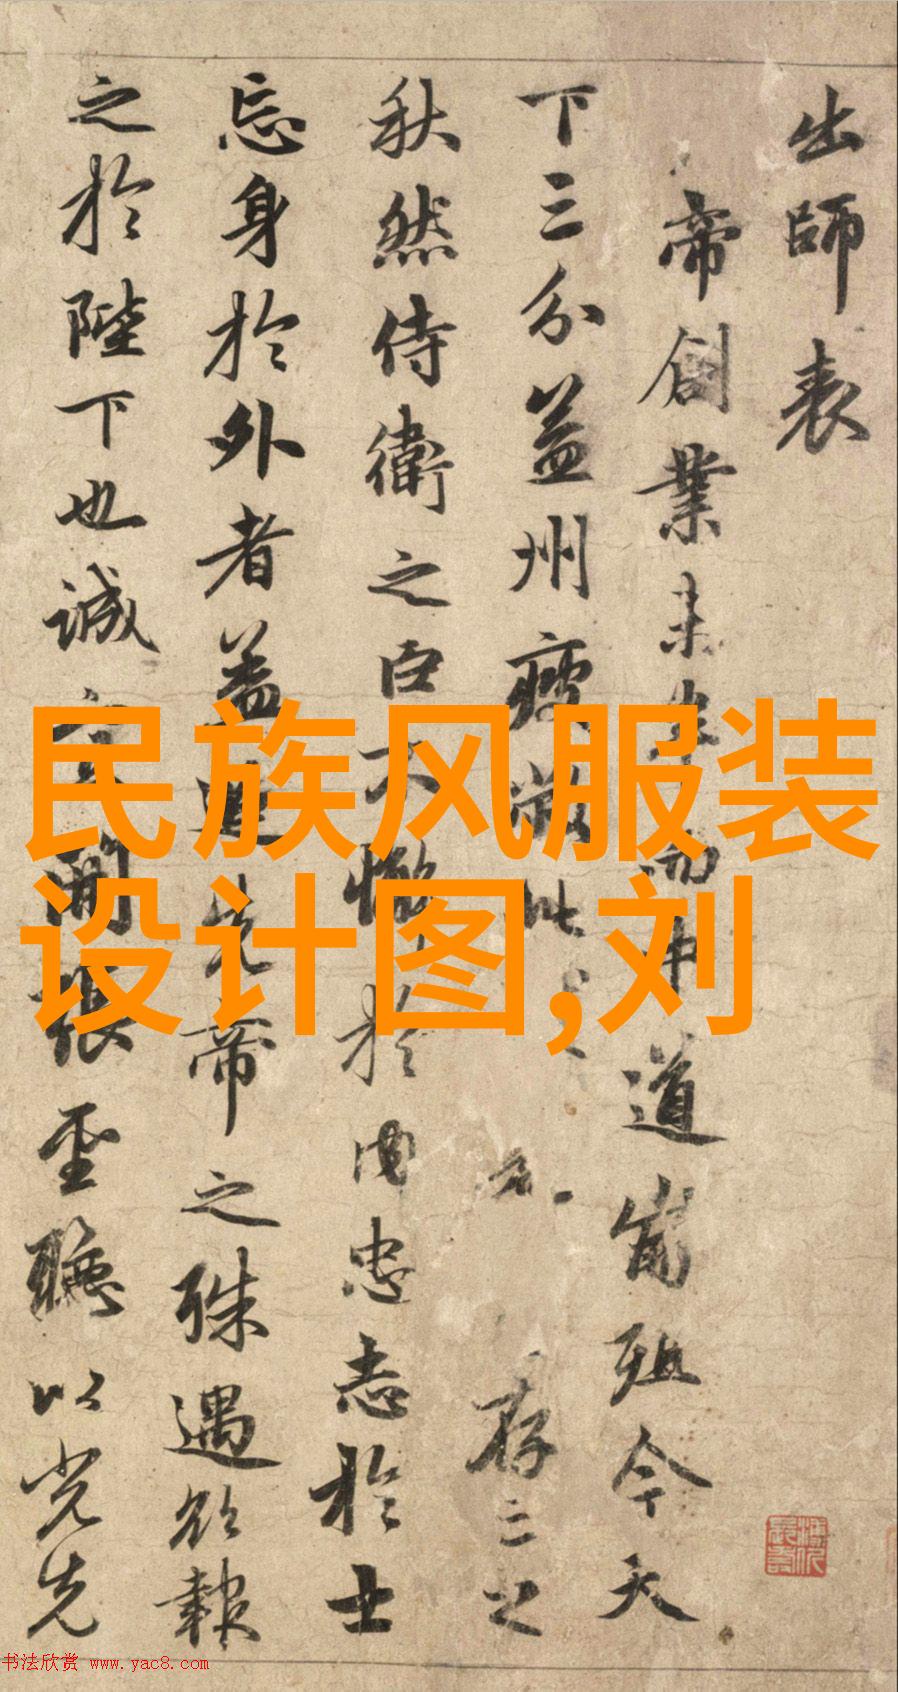 出師表
帝創業未半而中道崩殂今天
下三分益州疲敝此存亡之
秋然侍衛之臣不懈於内忠志於士
忘身於外者蓋追先帝之殊遇欲報
之於陛下也誠宜開張聖聽以光先
民族风服装
设计图,刘
书法欣赏 www.yac8.com